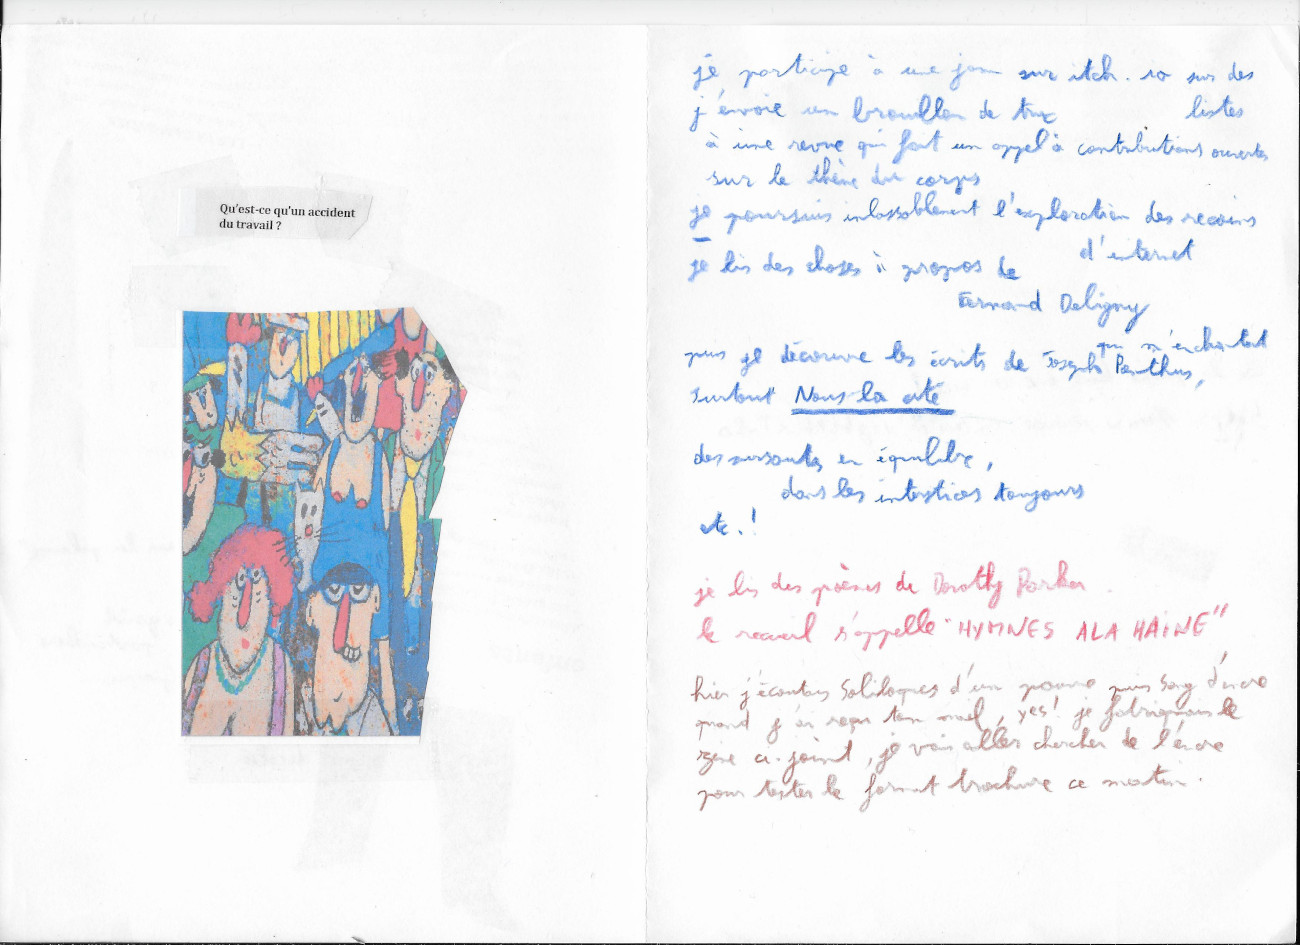 Qu'est-ce qu'un accident
du travail ?
je participe à une jam sur itch.io sur des
listes
j'envoie un brouillon de trux
à une revue qui fait un appel à contributions ouvertes
sur le thème du corps
je poursuis inlassablement l'exploration des recoins
d'internet
je lis des choses à propos de
Fernand Deligny
qui m'enchantent
puis je découvre les écrits de Joseph Ponthus,
surtout Nous la cité
des sursauts, en équilibre,
dans les interstices toujours
etc.!
je lis des poèmes de Dorothy Parker.
le recueil s'appelle "HYMNES A LA HAINE"
hier j'écoutais Soliloques d'un pauvre puis Sang d'encre
quand j'ai reçu ton mail, yes! je fabriquais le
zine ci-joint, je vais aller chercher de l'encre
pour tester le format brochure ce matin.